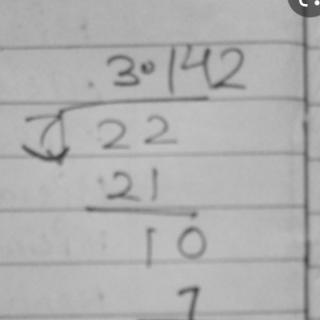 3.142
7 22
21
10
7